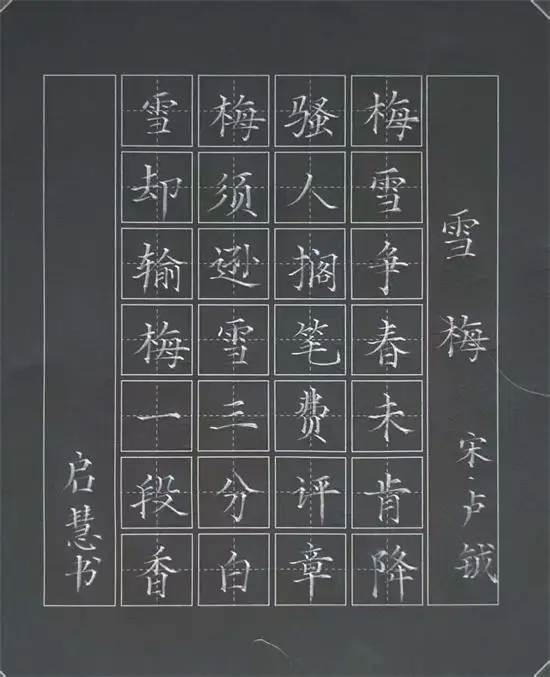 雪梅
宋·卢钺
梅雪争春未肯降
骚人搁笔费评章
梅须逊雪三分白
雪却输梅一段香
启慧书